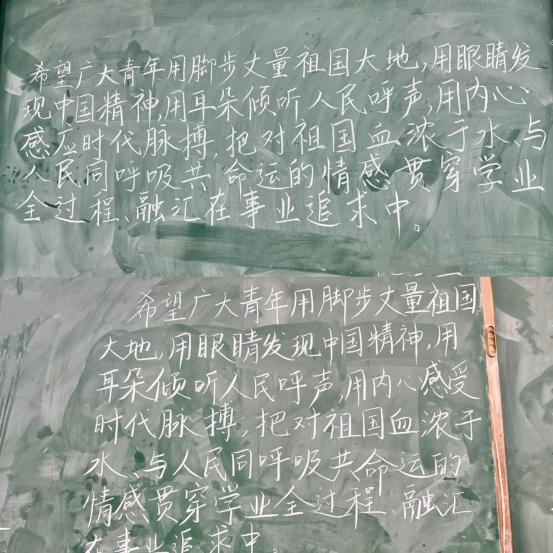 希望广大青年用脚步丈量祖国大地,用眼睛发
现中国精神,用耳朵倾听人民呼声,用内心
感应时代脉搏,把对祖国血浓于水、与
人民同呼吸共命运的情感贯穿学业
全过程、融汇在事业追求中。
希望广大青年用脚步丈量祖国
大地,用眼睛发现中国精神,用
耳朵倾听人民呼声,用内心感受
时代脉搏,把对祖国血浓于
水、与人民同呼吸共命运的
情感贯穿学业全过程、融汇
在事业追求中。